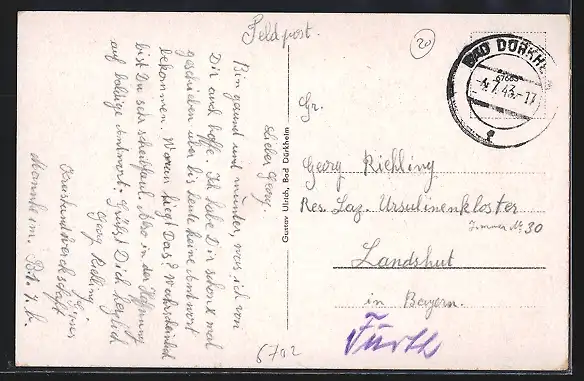 Feldpost.
20
BAD DÜRKHEIM
-4.7.43.-17
c
Lieber Georg.
Bin gesund und munter was ich von
Dir auch hoffe. Ich habe Dir schon x mal
geschrieben aber bis heute keine Antwort
bekommen. Woran liegt Das? Wahrscheinlich
bist Du sehr schreibfaul. Also in der Hoffnung
auf baldige Antwort. Grüßt Dich herzlich
Georg
Mannheim.
Gustav Ulrich, Bad Dürkheim
Gr.
Georg Riehling
Res. Laz. Ursulinenkloster
Zimmer Nr. 30
Landshut
in Bayern.
Fürth
5702